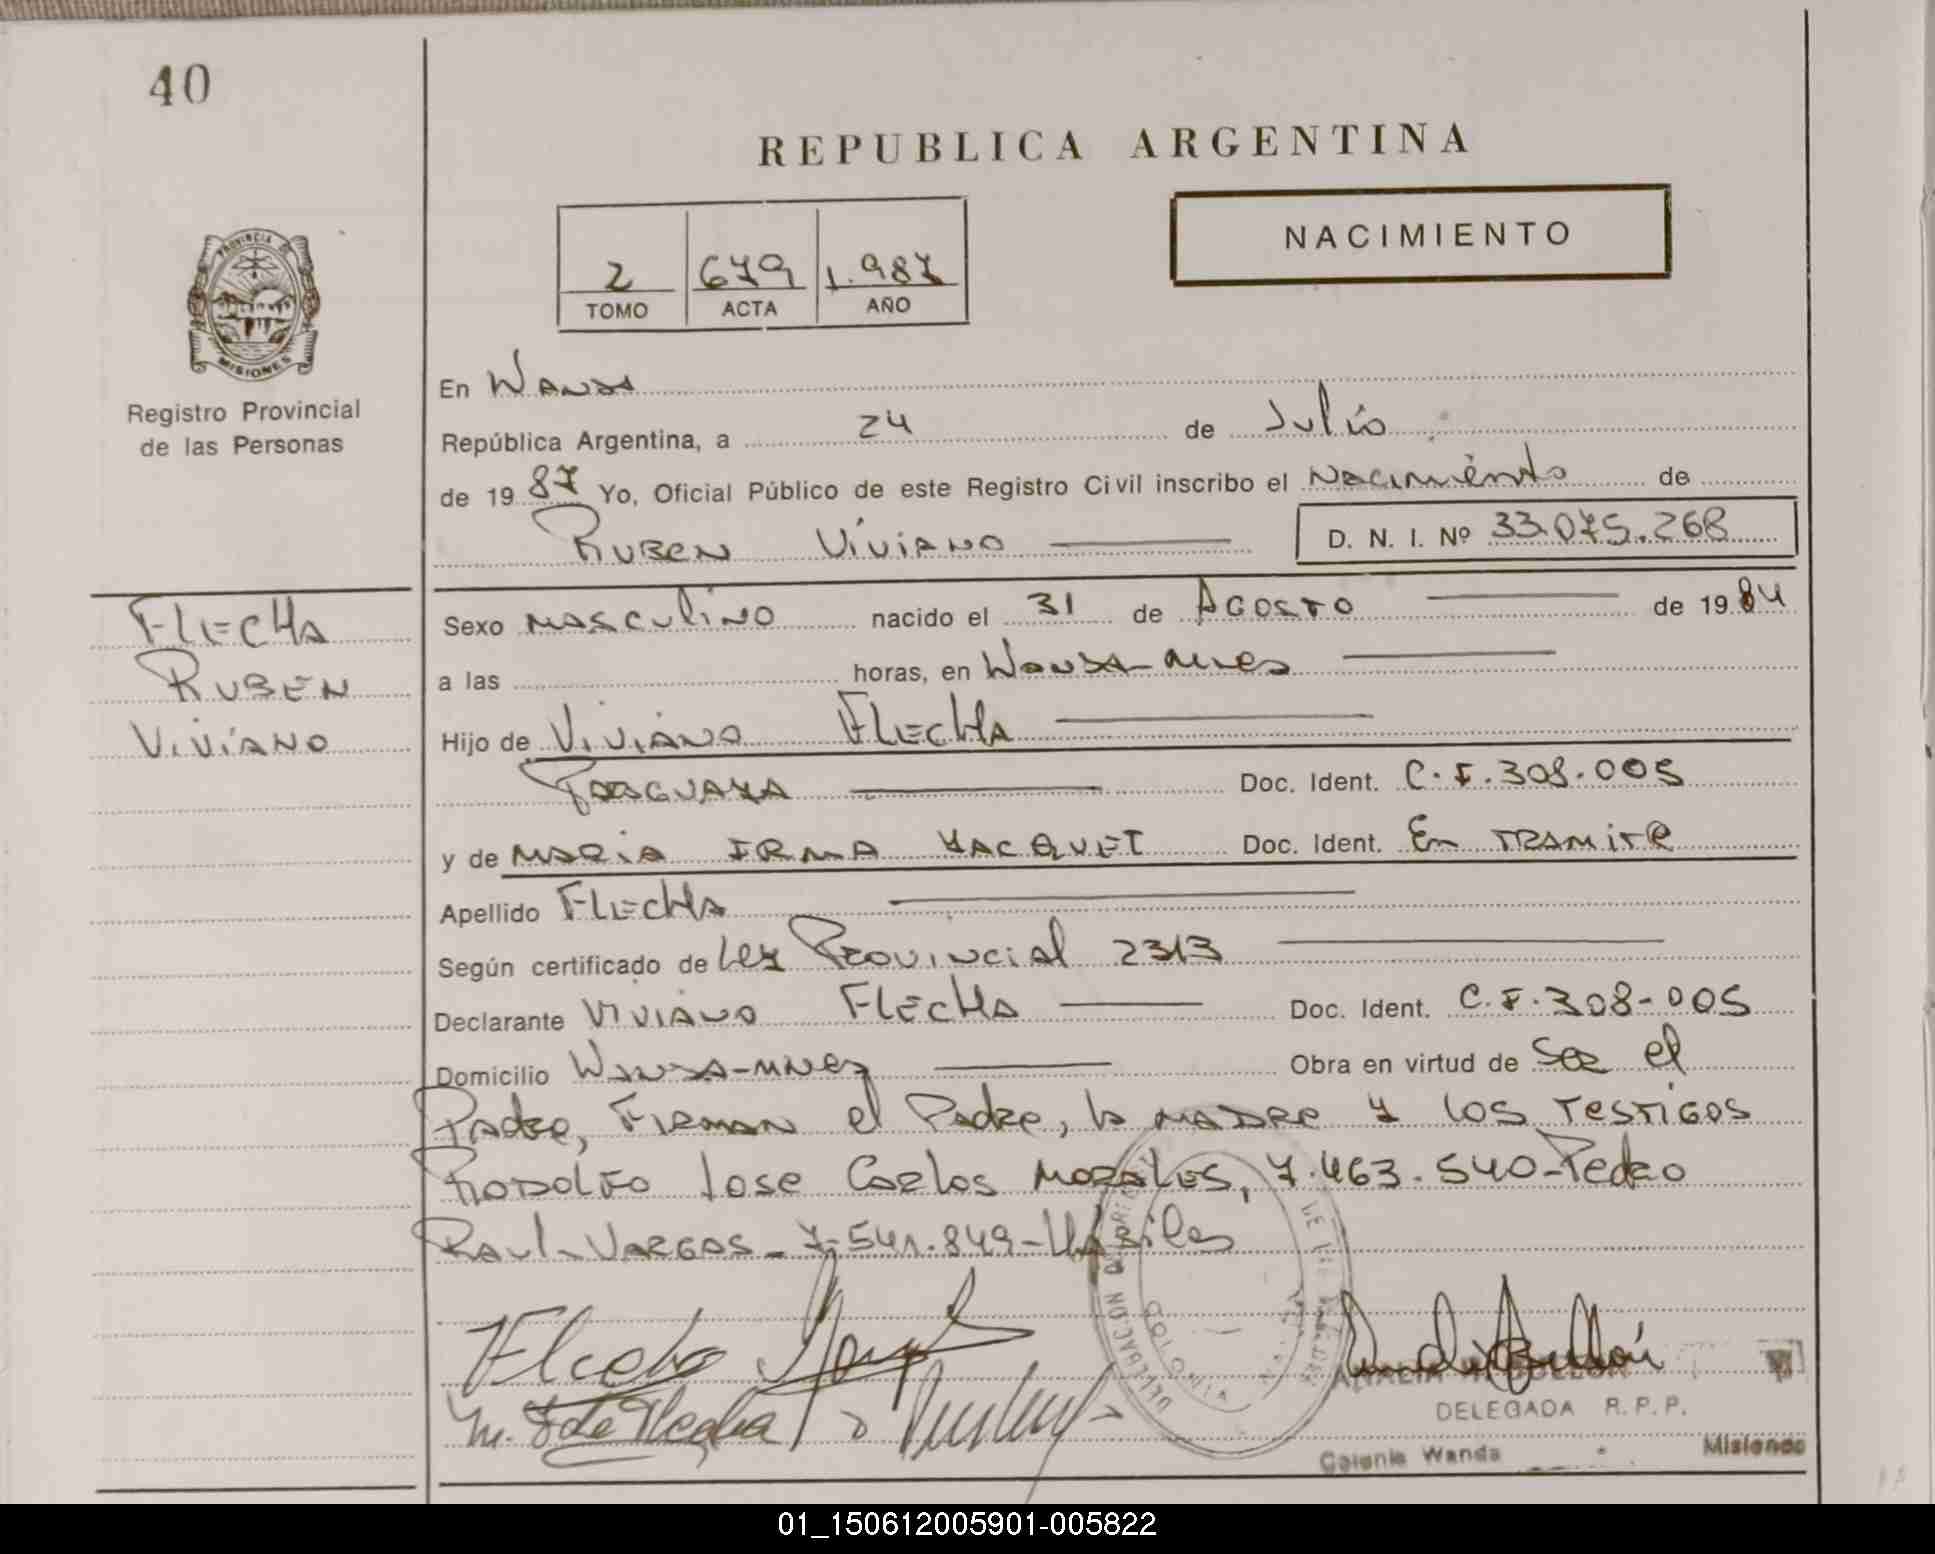 40
REPUBLICA ARGENTINA
NACIMIENTO
2 679 1.987
TOMO ACTA AÑO
PROVINCIA DE
MISIONES
Registro Provincial
de las Personas
En Wanda
República Argentina, a 24 de Julio
de 19 87 Yo, Oficial Público de este Registro Civil inscribo el Nacimiento de
RUBEN VIVIANO D. N. I. Nº 33.075.268
FLECHA
RUBEN
VIVIANO
Sexo MASCULINO nacido el 31 de AGOSTO de 19 84
a las horas, en Wanda-Mnes
Hijo de VIVIANO FLECHA
PARAGUAYA Doc. Ident. C.I.308.005
y de MARIA IRMA YACQUET Doc. Ident. En TRAMITE
Apellido FLECHA
Según certificado de Ley Provincial 2313
Declarante VIVIANO FLECHA Doc. Ident. C.I.308-005
Domicilio WANDA-MNES Obra en virtud de Ser el
Padre, FIRMAN el Padre, la MADRE y los TESTIGOS
RODOLFO Jose Carlos MORALES, 7.463.540-Pedro
RAUL VARGAS - 7-541.849-Hábiles
DELEGADA R.P.P.
Colonia Wanda Misiones
01_150612005901-005822